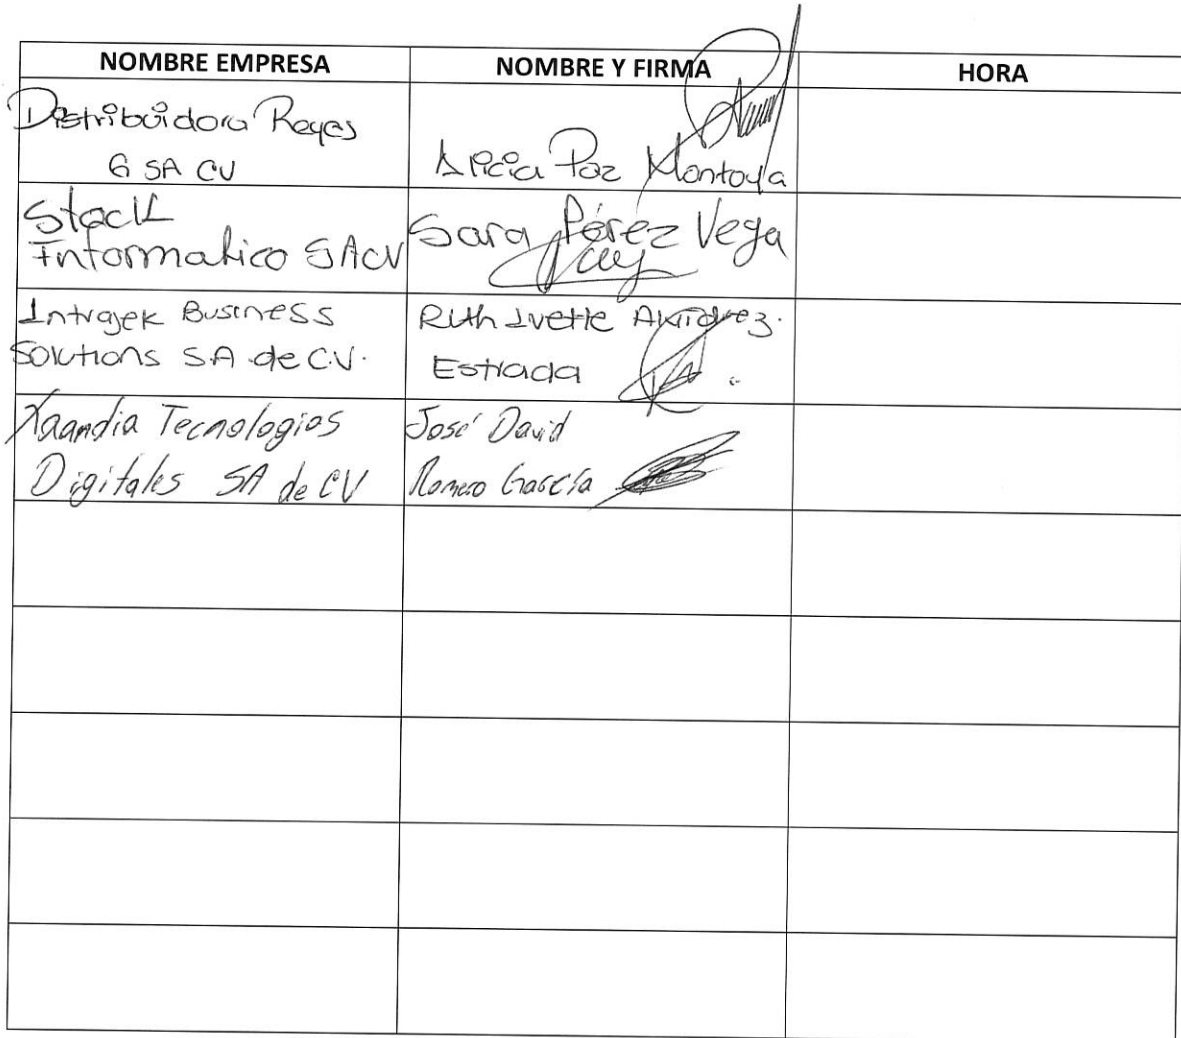 NOMBRE EMPRESA NOMBRE Y FIRMA HORA
Distribuidora Reyes
G SA CV
Alicia Paz Montoya
Stack
Informatico SACV
Sara Pérez Vega
Intragek Business
Solutions S.A de C.V.
Ruth Ivette
Estrada
Xaandia Tecnologias
Digitales SA de CV
José David
Romero García